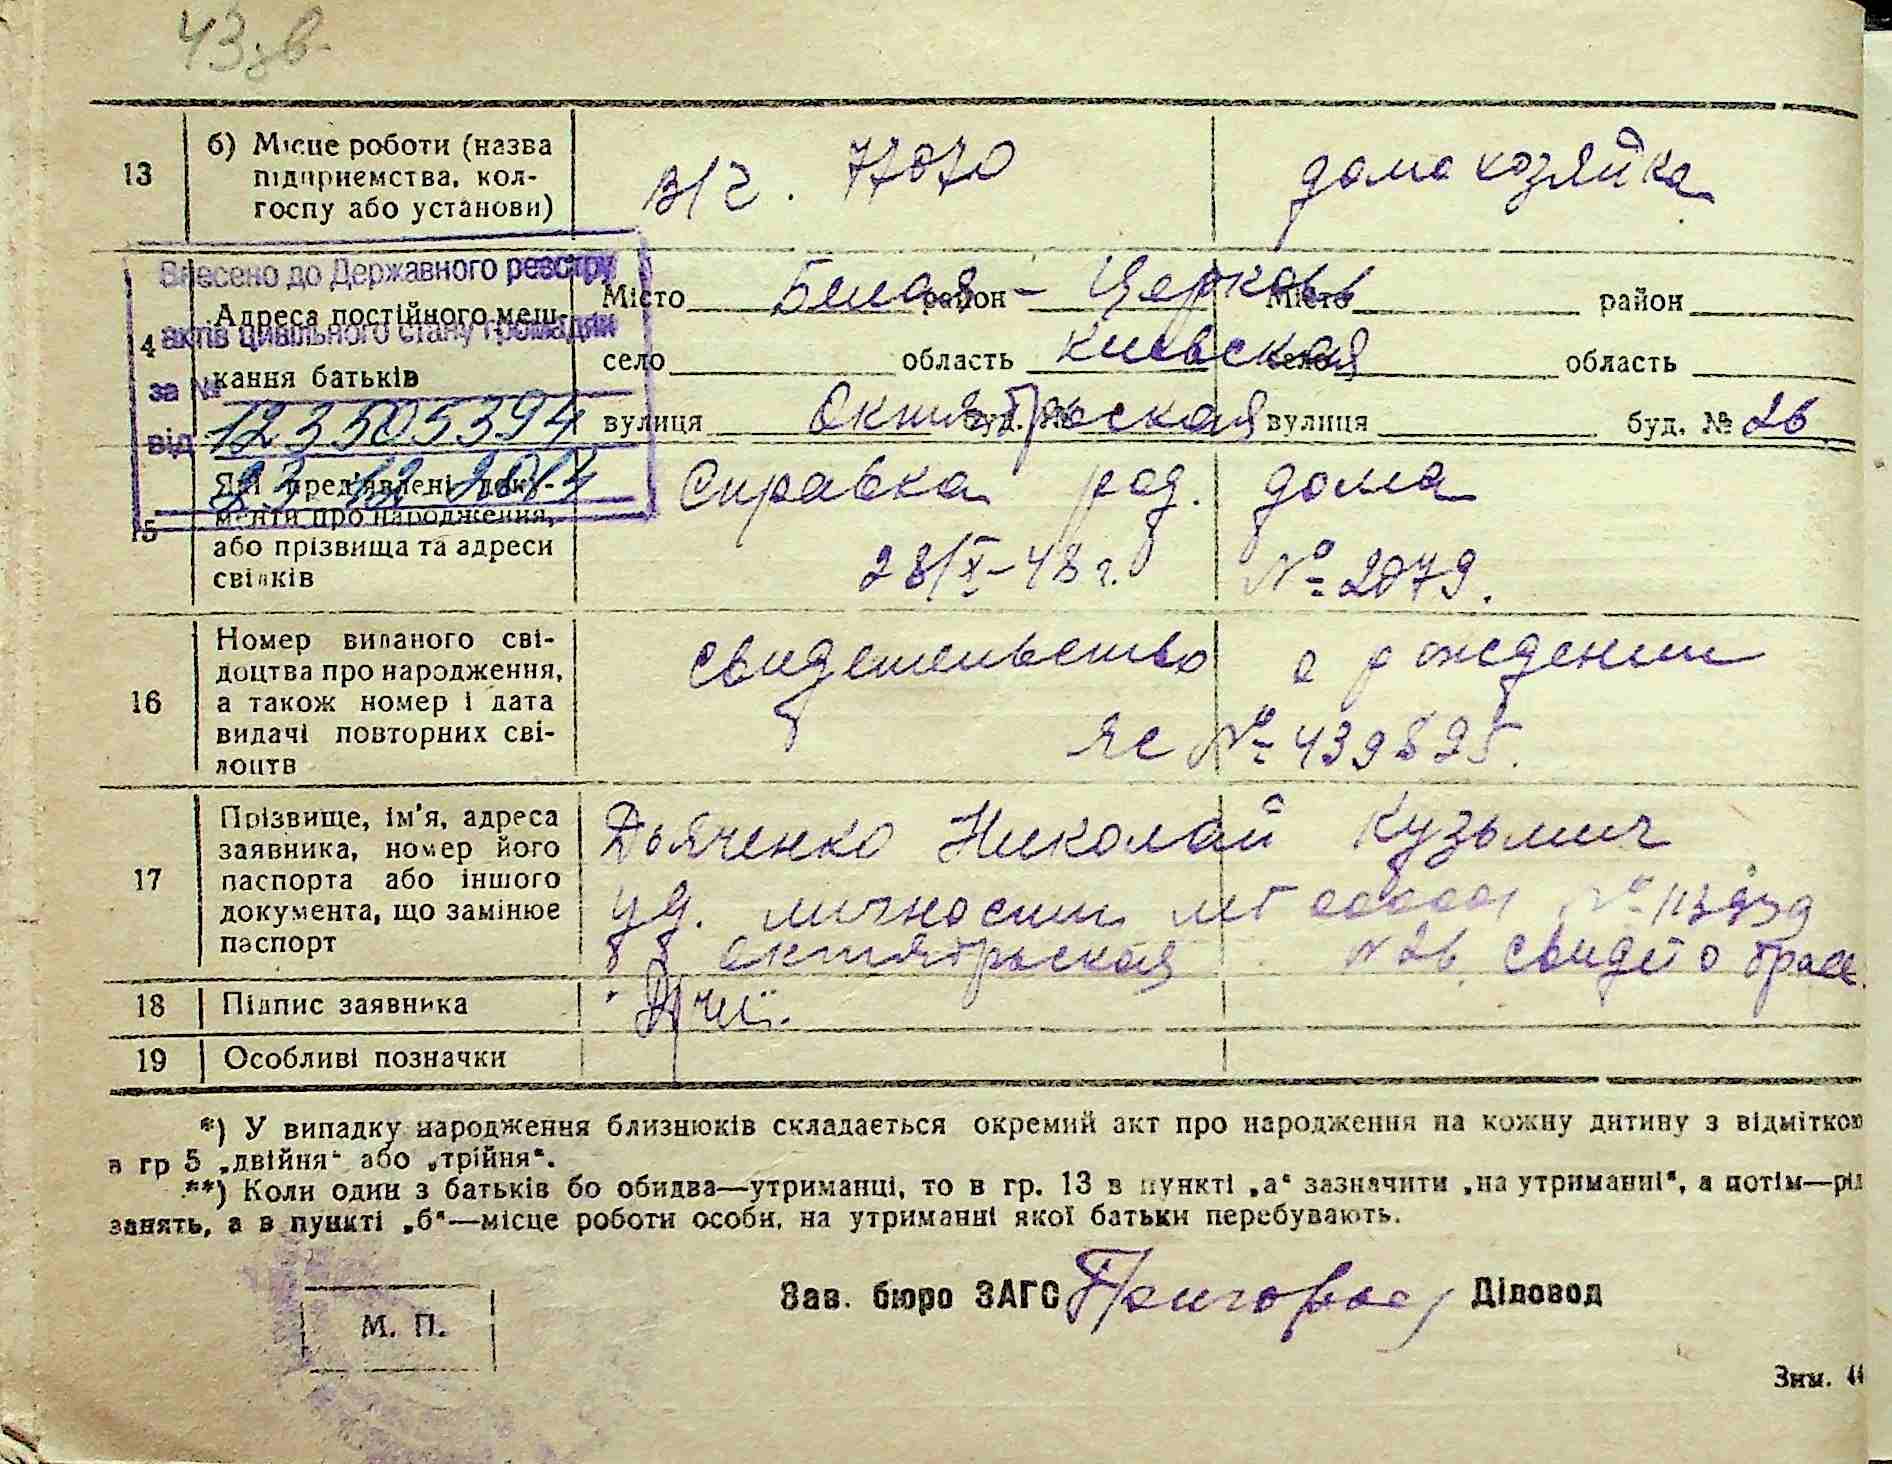 43зв.
13
б) Місце роботи (назва
підприємства, кол-
госпу або установи)
в/ч. 77070
домохозяйка
Внесено до Державного реєстру
актів цивільного стану громадян
за №
123505394
від 23 12 2014
4
Адреса постійного меш-
кання батьків
Місто Белая - район Церковь Місто район
село область Киевская село область
вулиця Октябрьская буд. № вулиця буд. № 26
15
Які пред'явлені доку-
менти про народження,
або прізвища та адреси
свідків
Справка род. дома
28/X-48 г. № 2079.
16
Номер виданого сві-
доцтва про народження,
а також номер і дата
видачі повторних сві-
доцтв
свидетельство о рождении
ЯС № 439825.
17
Прізвище, ім'я, адреса
заявника, номер його
паспорта або іншого
документа, що замінює
паспорт
Дьяченко Николай Кузьмич
уд. личности
октябрьская № 26 свидет о брак
18
Підпис заявника
19
Особливі позначки
*) У випадку народження близнюків складається окремий акт про народження на кожну дитину з відміткою
в гр 5 „двійня“ або „трійня“.
**) Коли один з батьків бо обидва—утриманці, то в гр. 13 в пункті „а“ зазначити „на утриманні“, а потім—рід
занять, а в пункті „б“—місце роботи особи, на утриманні якої батьки перебувають.
Зав. бюро ЗАГС Діловод
М. П.
Зим.